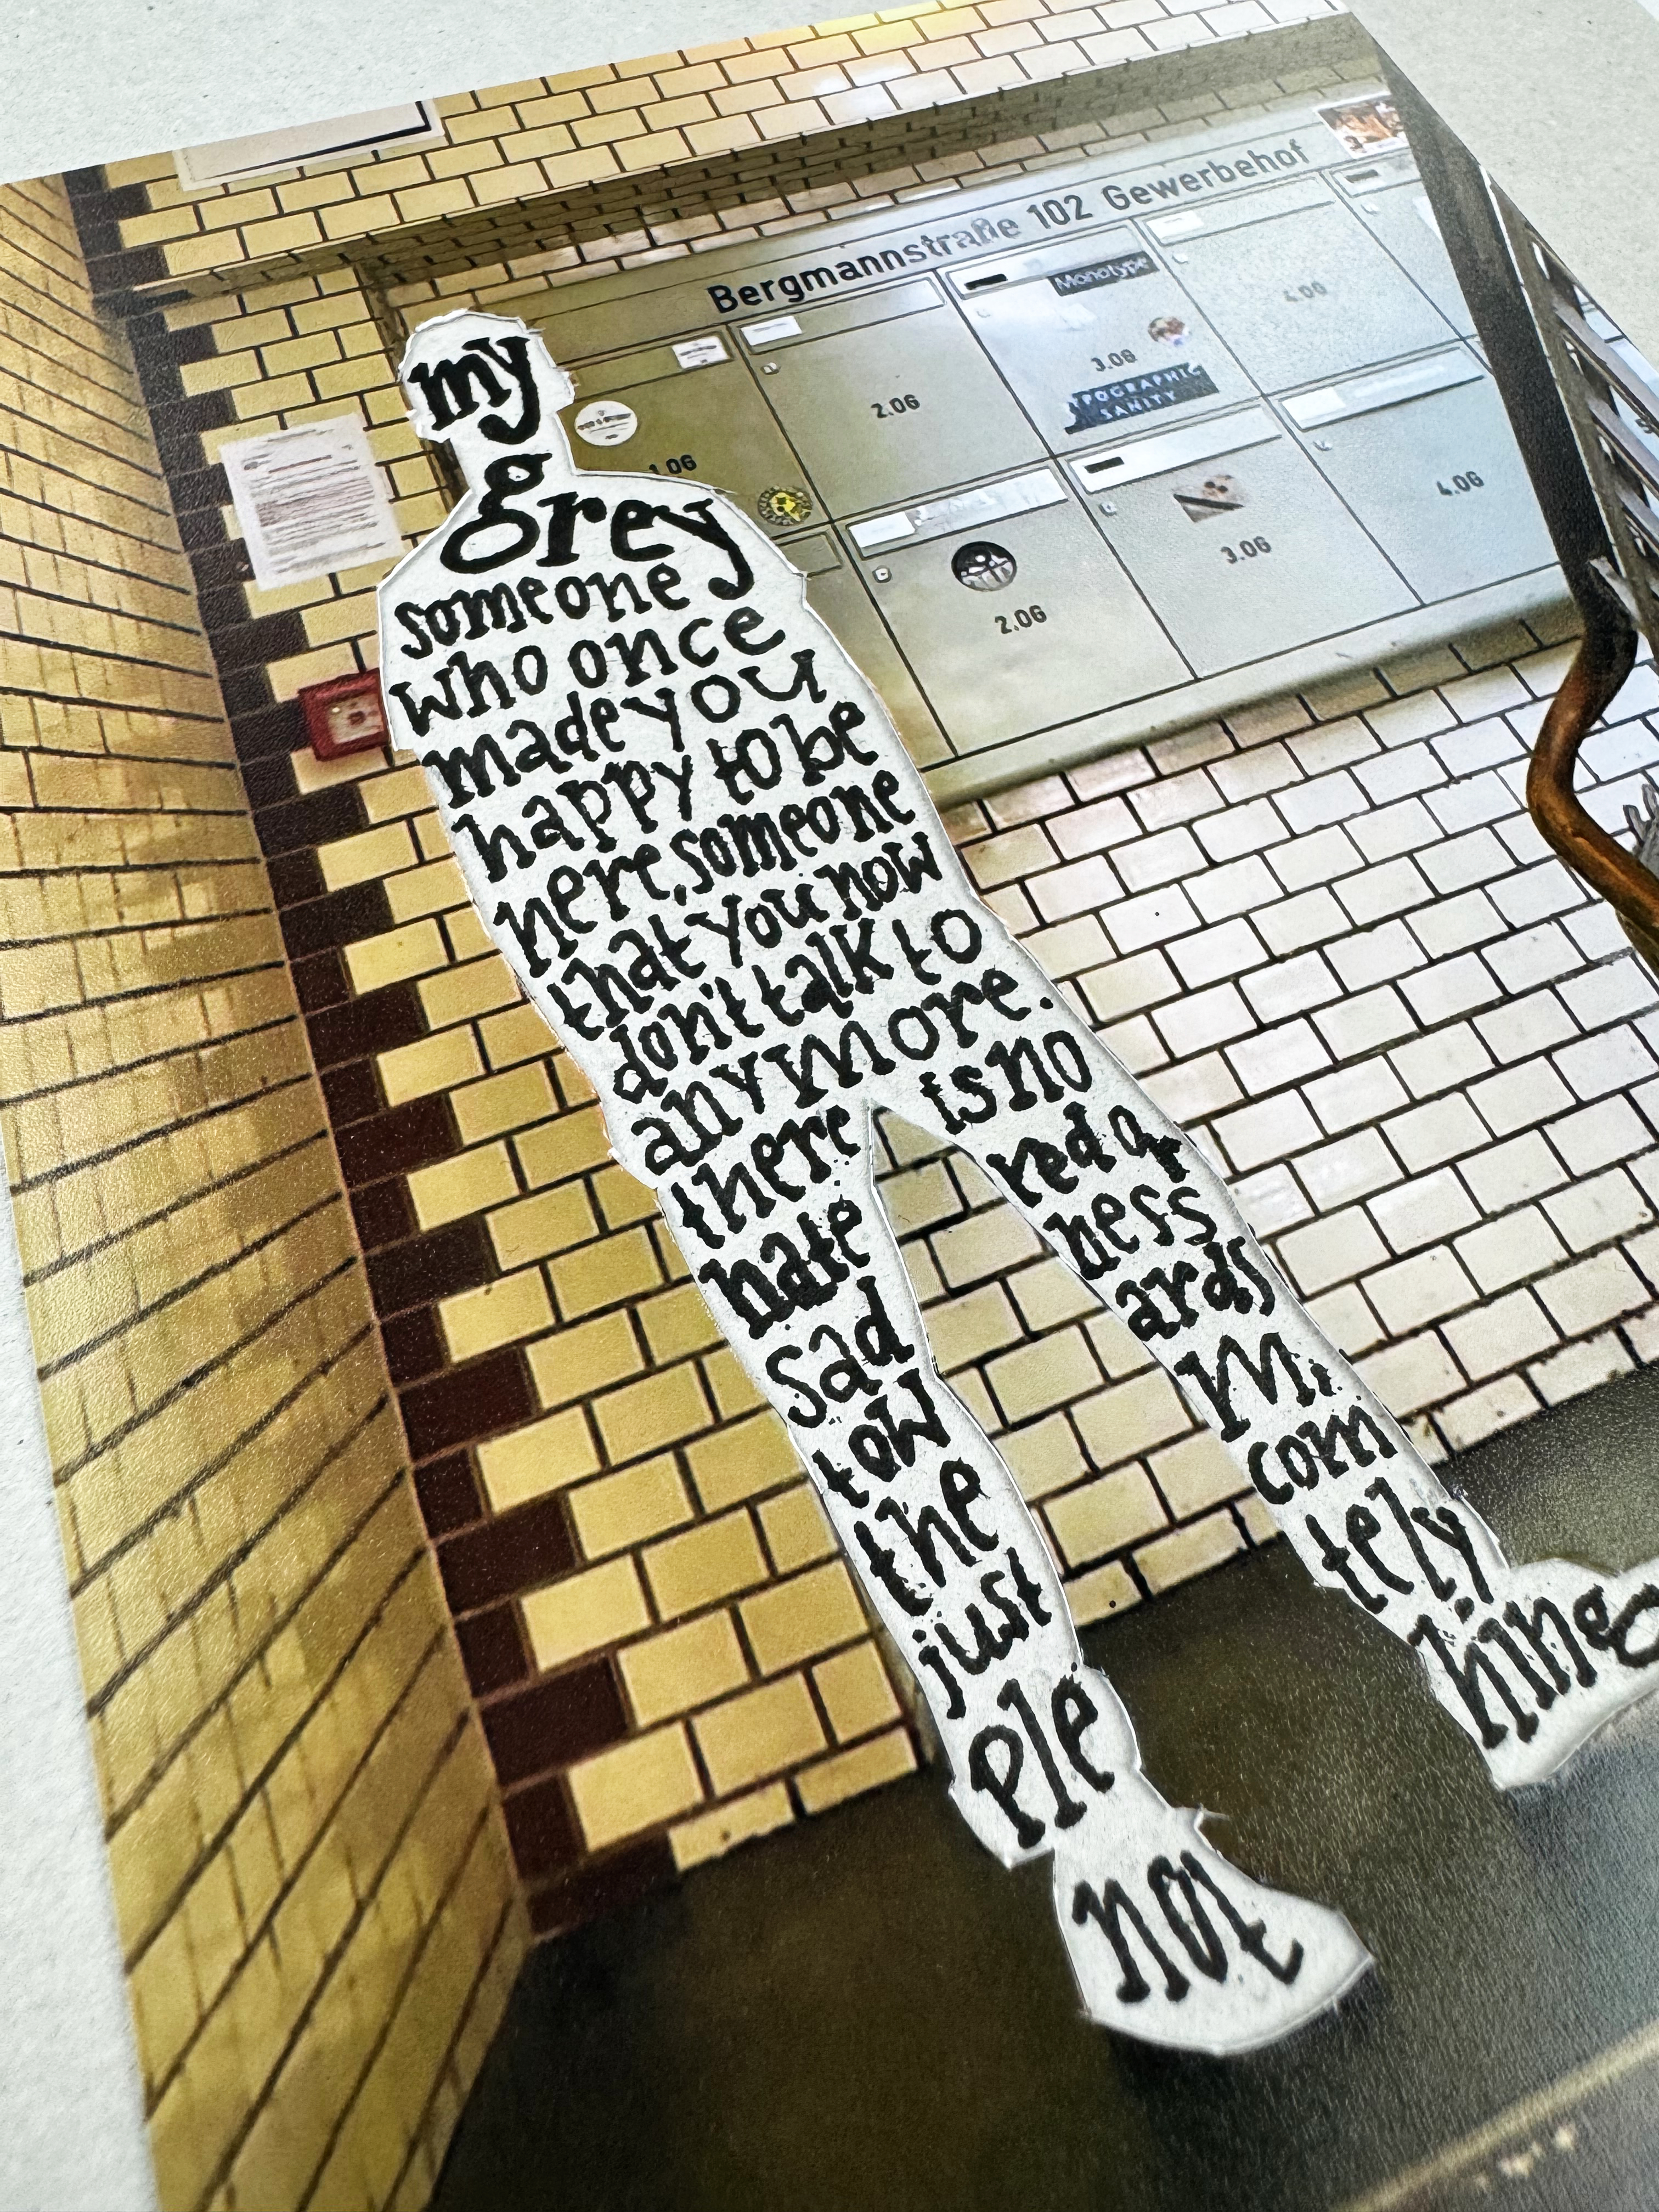 Bergmannstraße 102 Gewerbehof
Monotype
3.OG
TYPOGRAPHIC
SANITY
4.OG
2.OG
1.OG
4.OG
3.OG
2.OG
my
grey
someone
who once
made you
happy to be
here, someone
that you now
don't talk to
anymore.
there is no
hate red q
sad ness
tow ards
the M.
just com
ple tely
not hing